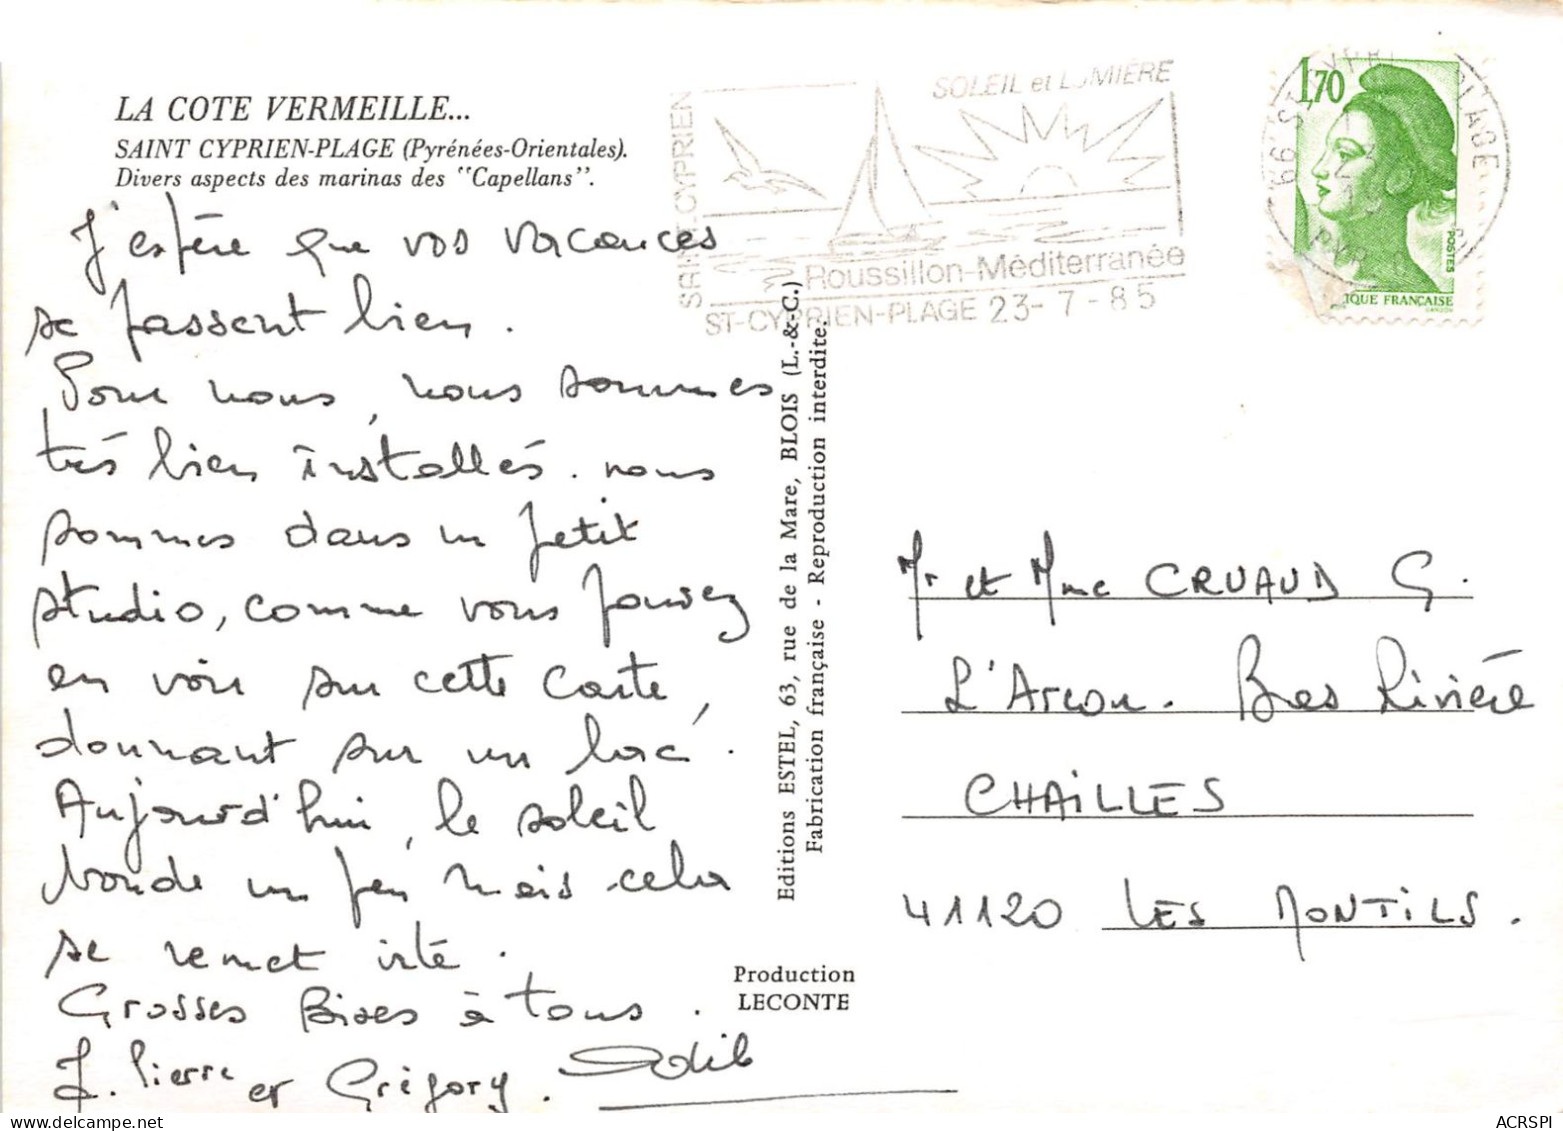 LA COTE VERMEILLE...
SAINT CYPRIEN-PLAGE (Pyrénées-Orientales).
Divers aspects des marinas des "Capellans".
J'espère que vos vacances
se passent bien.
Pour nous, nous sommes
très bien installés. nous
sommes dans un petit
studio, comme vous pouvez
en voir sur cette carte,
donnant sur un lac.
Aujourd'hui, le soleil
boude un peu mais cela
se remet vite.
Grosses Bises à tous.
J. Pierre et Grégory. Odile
SAINT-CYPRIEN
SOLEIL et LUMIÈRE
Roussillon-Méditerranée
ST-CYPRIEN-PLAGE 23-7-85
1,70
POSTES
IQUE FRANÇAISE
Editions ESTEL, 63, rue de la Mare, BLOIS (L.-&-C.)
Fabrication française - Reproduction interdite.
Production
LECONTE
Mr et Mme CRUAUD G.
L'Arcon. Bas Rivière
CHAILLES
41120 LES MONTILS.
ACRSPI